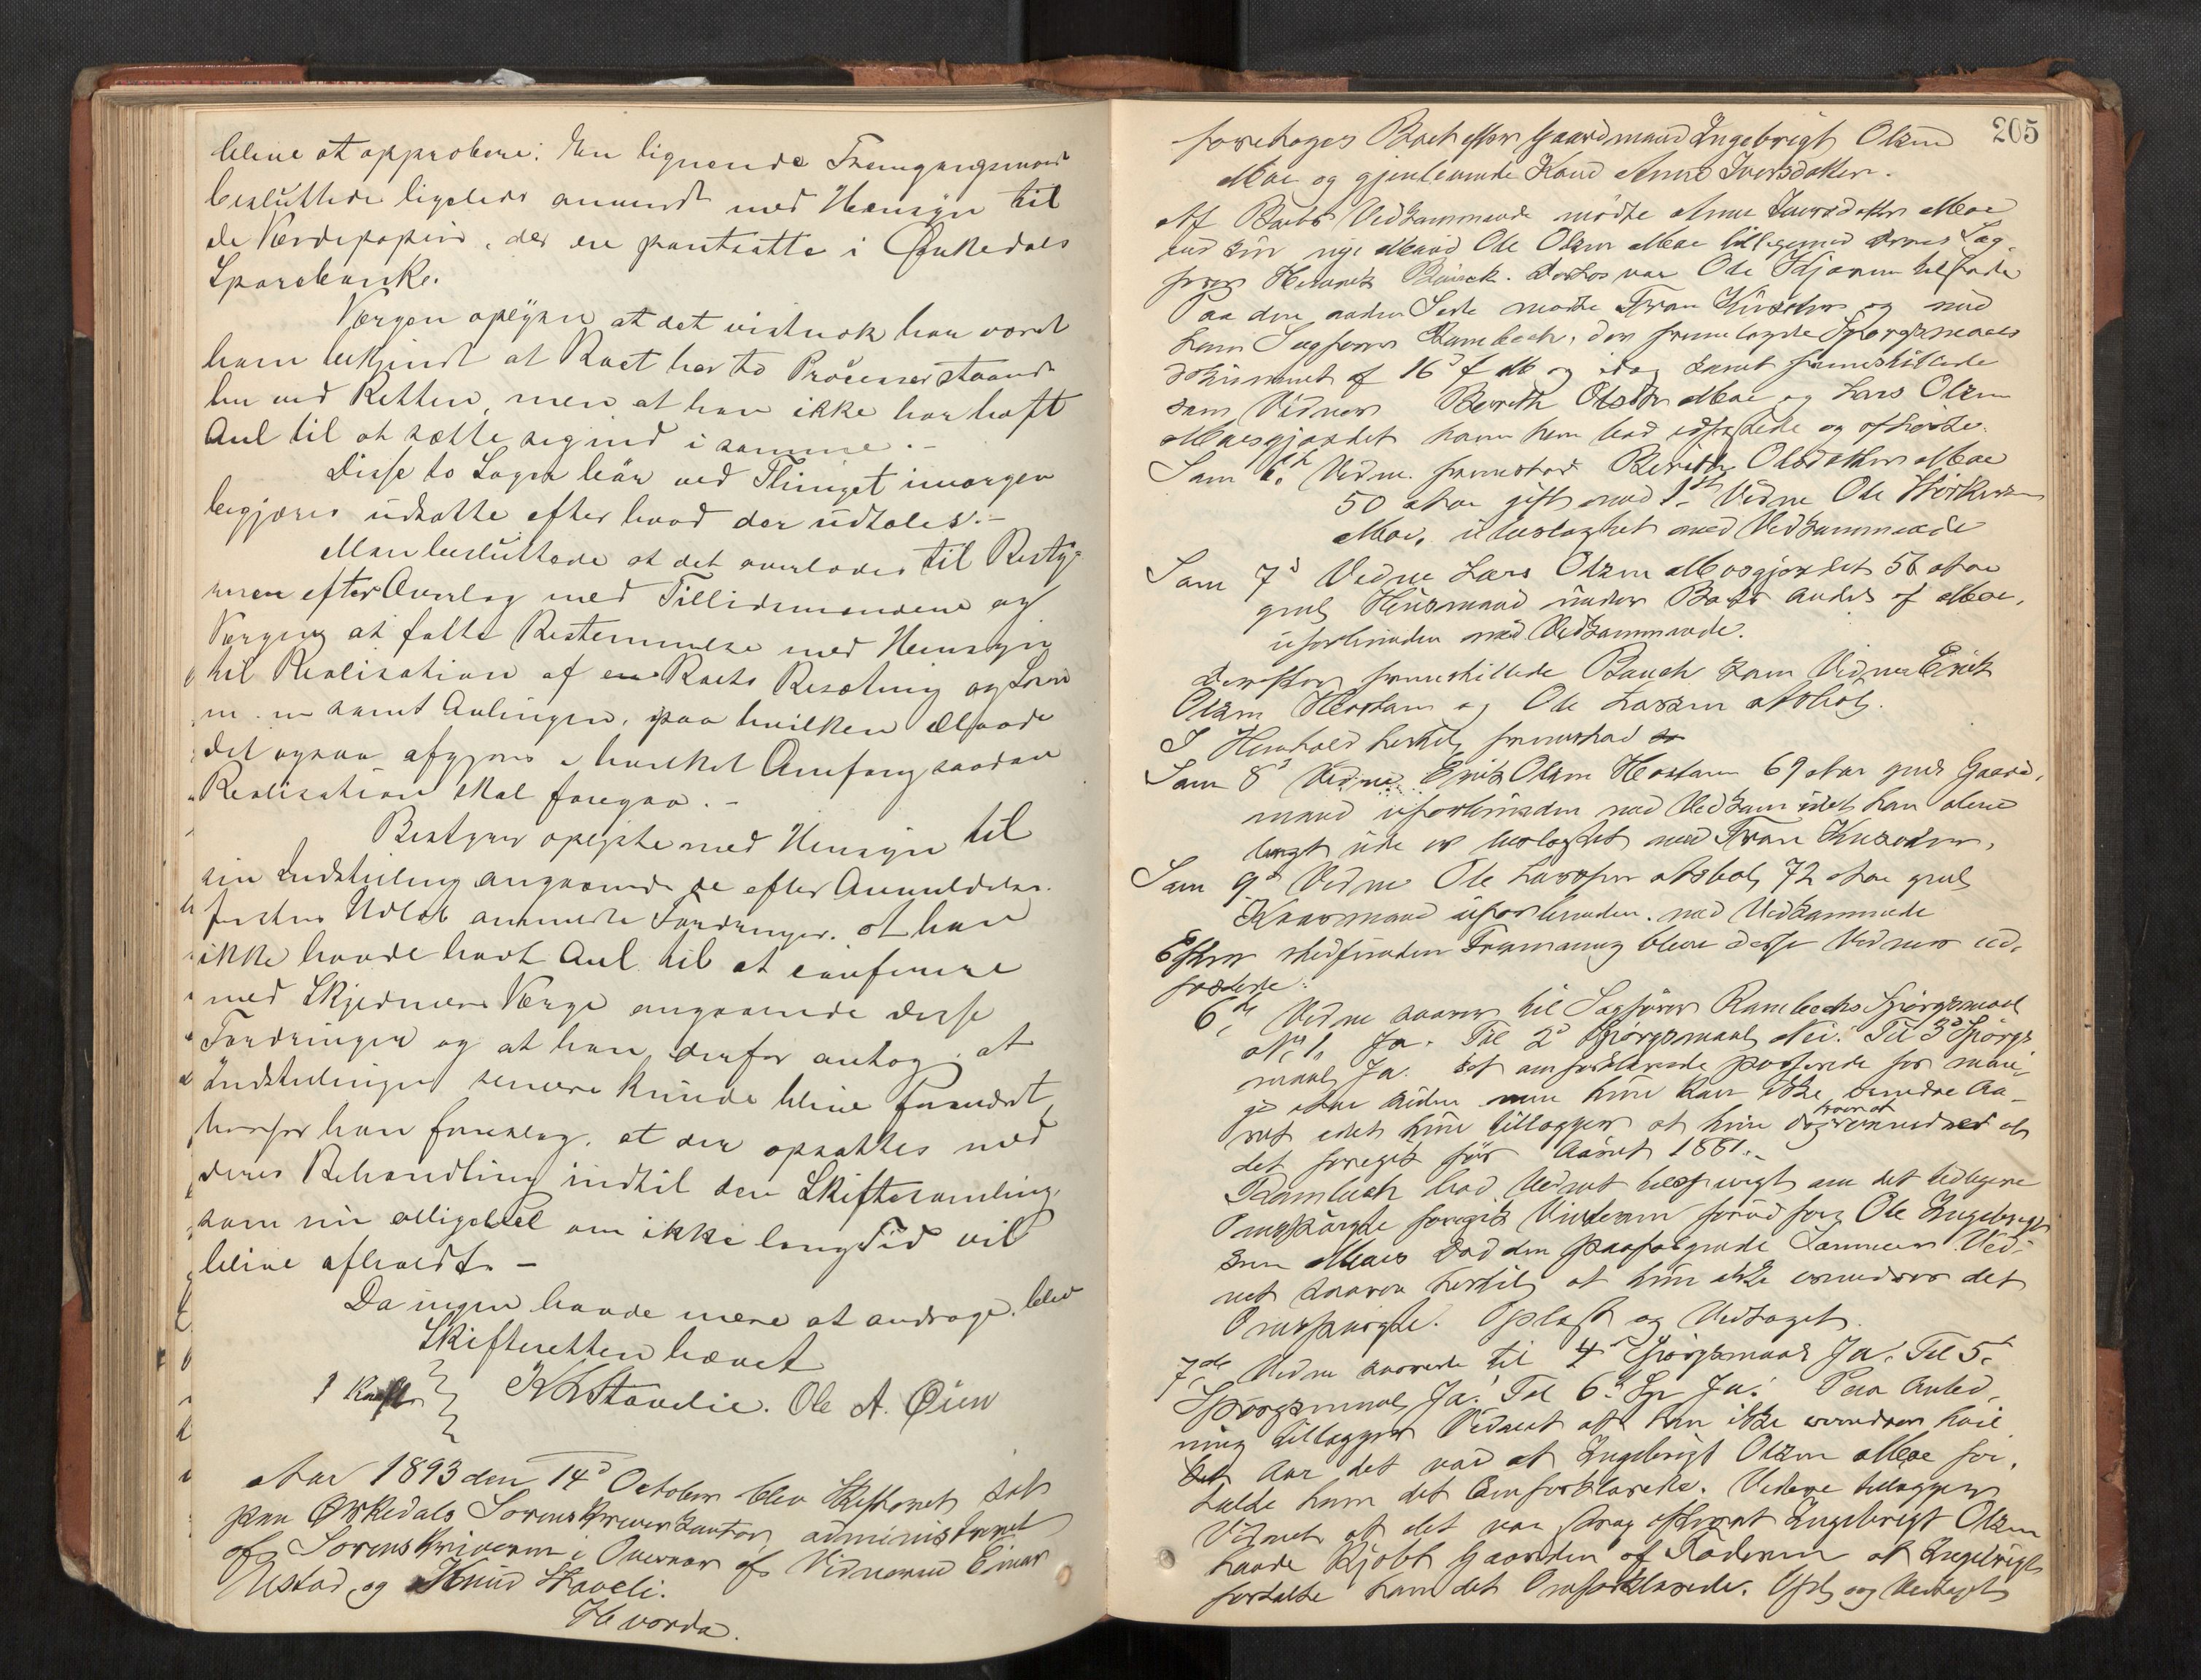 blive at approbere. En lignende Fremgangsmaade
besluttedes ligeledes anvendt med Hensyn til
de Værdipapirer, der ere pantsatte i Ørkedals
Sparebank.
Værgen oplyste at det vistnok har været
ham bekjendt at Raet har to Processer staaende
her ved Retten, men at han ikke har havt
Anl til at sætte sig ind i samme. -
Disse to Sager bør ved Thinget imorgen
begjæres udsatte efter hvad der udtales. -
Man besluttede at det overlades til Bestyreren
efter Overlæg med Tillidsmændene og
Værgen at fatte Bestemmelse med Hensyn
til Realisation af Raets Besætning og Løsøre
m. m samt Avlingen, paa hvilken Maade
det ogsaa afgjøres i hvilket Omfang saadan
Realisation skal foregaa. -
Bestyrer oplyste med Hensyn til
sin Indstilling angaaende de efter Anmeldelses-
fristens Udløb anmeldte Fordringer, at han
ikke havde havt Anl til at conferere
med Skyldnerens Værge angaaende disse
Fordringer og at han derfor antog, at
Indstillingen senere kunde blive forandret
hvorfor han foreslog, at der opsattes med
deres Behandling indtil den Skiftesamling,
som nu alligevel om ikke lang Tid vil
blive afholdt. -
Da ingen havde mere at andrage, blev
Skifteretten hævet
K L Stavlie. Ole A. Øien
Aar 1893 den 14d October blev Skifteret sat
paa Ørkedals Sorenskriverkontor, administreret
af Sorenskriveren i Overvær af Vidnerne Einar
Ustad og Knud Stavli.
Hvorda.
205
foretoges Boet efter Gaardmand Ingebrigt Olsen
Moe og gjenlevende Kone Anne Iversdatter.
Af Boets Vedkommende mødte Anne Iversdatter Moe
med sin nye Mand Ole Olsen Moe tilligemed deres Sag-
fører Buuck. Desuden var Ole tilstede
Paa den anden Side mødte Fran og med
ham Sagfører Rambech, der fremlagde Spørgsmaals
dokument af 16d f M og idag samt fremstillede
som Vidner Bereth Olsdtr Moe og Lars Olsen
Moesgjærdet
Som 6te Vidne fremstod Bereth Olsdatter Moe
50 Aar gift med 1ste Vidne Ole
Moe, ubeslægtet med Vedkommende
Som 7d Vidne Lars Olsen Moesgjærdet 56 Aar
gml Husmand under Boets Andel af Moe,
uforbunden med Vedkommende.
Derefter fremstillede Bauck som Vidner Erik
Olsen og Ole Larsen
I Henhold hertil fremstod
Som 8d Vidne Erik Olsen 69 Aar gml Gaard-
mand uforbunden med Vedkom idet han alene
langt ude er beslægtet med Fran
Som 9d Vidne Ole Larsen 72 Aar gml
Kaarmand uforbunden med Vedkommende
Efter stedfunden Formaning bleve disse Vidner ed-
fæstede:
6te Vidne svarer til Sagfører Rambechs Spørgsmaal
No 1. Ja. Til 2d Spørgsmaal Nei. Til 3d Spørgs
maal Ja. det omforklarede passerede for man-
ge Aar siden men hun kan ikke erindre Aa-
ret idet hun tillægger at hun dog troer at erindre at
det foregik før Aaret 1881. -
Rambech bad Vidnet udspurgt om det tidligere
Omspurgte foregik Vinteren forud for Ole Ingebrigt-
sen Moes Død den paafølgende Sommer. Vid-
net svarer hertil at hun ikke erindrer det
Omspurgte. Oplæst og Vedtaget.
7de Vidne svarede til 4d Spørgsmaal Ja. Til 5.
Spørgsmaal Ja. Til 6d Sp Ja. Paa Anled-
ning tillægger Vidnet at han ikke erindrer hvil
ket Aar det var at Ingebrigt Olsen Moe for-
talde ham det Omforklarede. Videre tillægger
Vidnet at det var strax efterat Ingebrigt Olsen
havde kjøbt Gaarden af Faderen at Ingebrigt
fortalte ham det Omforklarede. Opl og Vedtaget